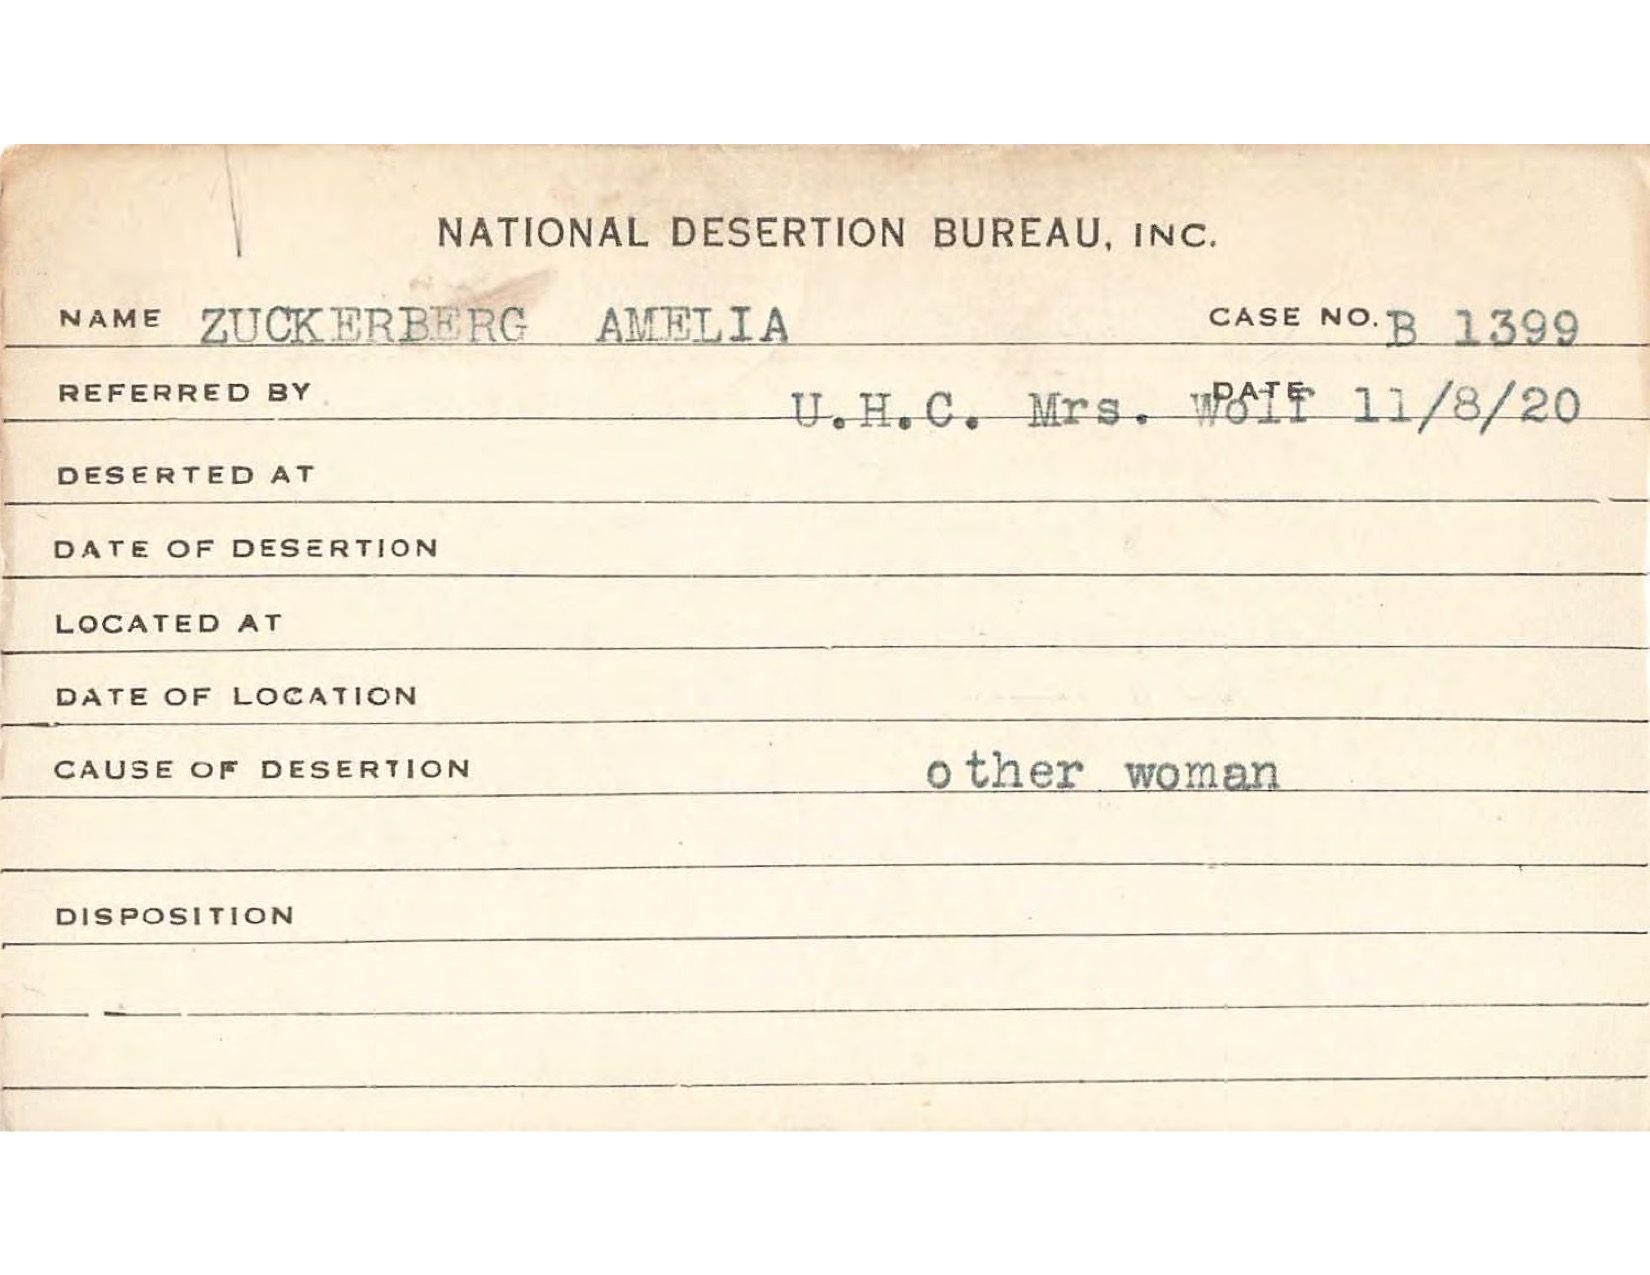 NATIONAL DESERTION BUREAU, INC.
NAME ZUCKERBERG AMELIA CASE NO. B 1399
REFERRED BY U.H.C. Mrs. Wolf DATE 11/8/20
DESERTED AT
DATE OF DESERTION
LOCATED AT
DATE OF LOCATION
CAUSE OF DESERTION other woman
DISPOSITION